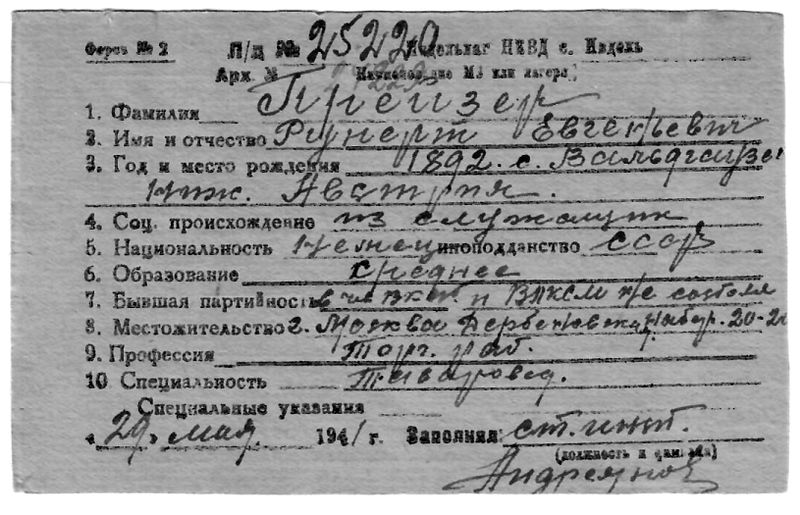 Форма № 2 Л/д № 25220 Ивдельлаг НКВД с. Ивдель
Арх. № (Наименование МЗ или лагеря)
1. Фамилия Прейзер
2. Имя и отчество Руперт Евгеньевич
3. Год и место рождения 1892. с. Вальдгаузе
Ниж. Австрия.
4. Соц. происхождение из служащих
5. Национальность Немец иноподданство СССР
6. Образование среднее
7. Бывшая партийность в ВКП и ВЛКСМ не состоял
8. Местожительство г. Москва Дербеневская набер. 20-2
9. Профессия Торг. раб.
10 Специальность Таваровед.
Специальные указания
"29" мая 1941 г. Заполнил: ст. инсп.
(должность и фамилия)
Андреянов